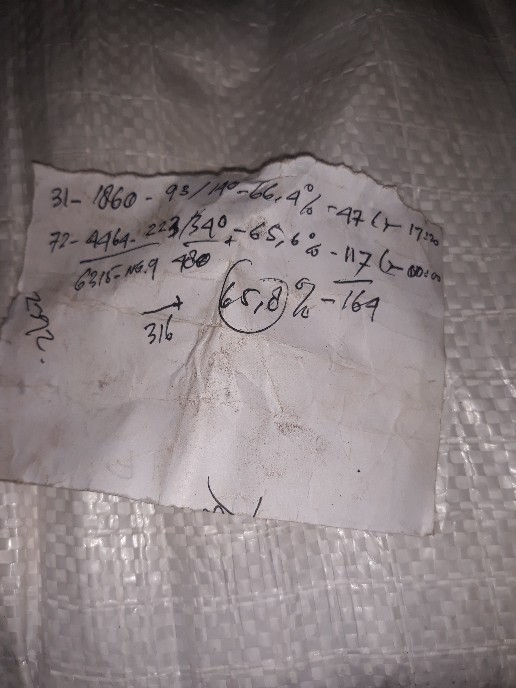 31-1860-93/140-66,4%-47(r-17:00
72-4464-223/340-65,6%-117(r-00:00
6315- 480
316 65,8%-164